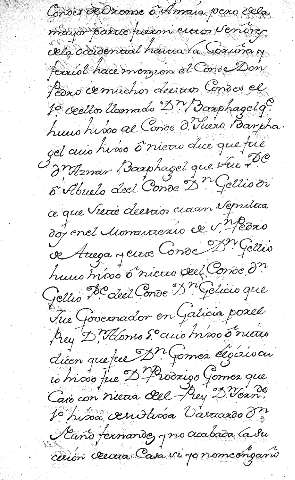 Condes de Orense ó Amaia, pero de la
mayor parte fueron estos señores
de la occidental hacia la Coruña y
ferrol hace menzion al Conde Don
Pedro de muchos de estos Condes el
1º de ellos llamado Dn Barphagel qe
hubo hixos al Conde Dn Suero Barpha
gel cuio hixo ó nieto dice que fue
Dn Aznar Barphagel que fue Pe
ó Abuelo del Conde Dn Gellio di
ce que siete de estos estan sepulta
dos en el Monasterio de Sn Pedro
de Arega y este Conde Dn Gellio
hubo hixo ó nieto del Conde Dn
Gellio Pe del Conde Dn Gelicio que
fue Governador en Galicia por el
Rey Dn Alonso 5º cuio hixo ó nieto
dicen que fue Dn Gomez elgicio cu
io hixo fue Dn Rodrigo Gomez que
Casó con nieta del Rey Dn Fern.
1º hixa de su hixa bastarda Dn
Nuño fernandez y no acabada la su
cesion de esta Casa si yo no me engaño